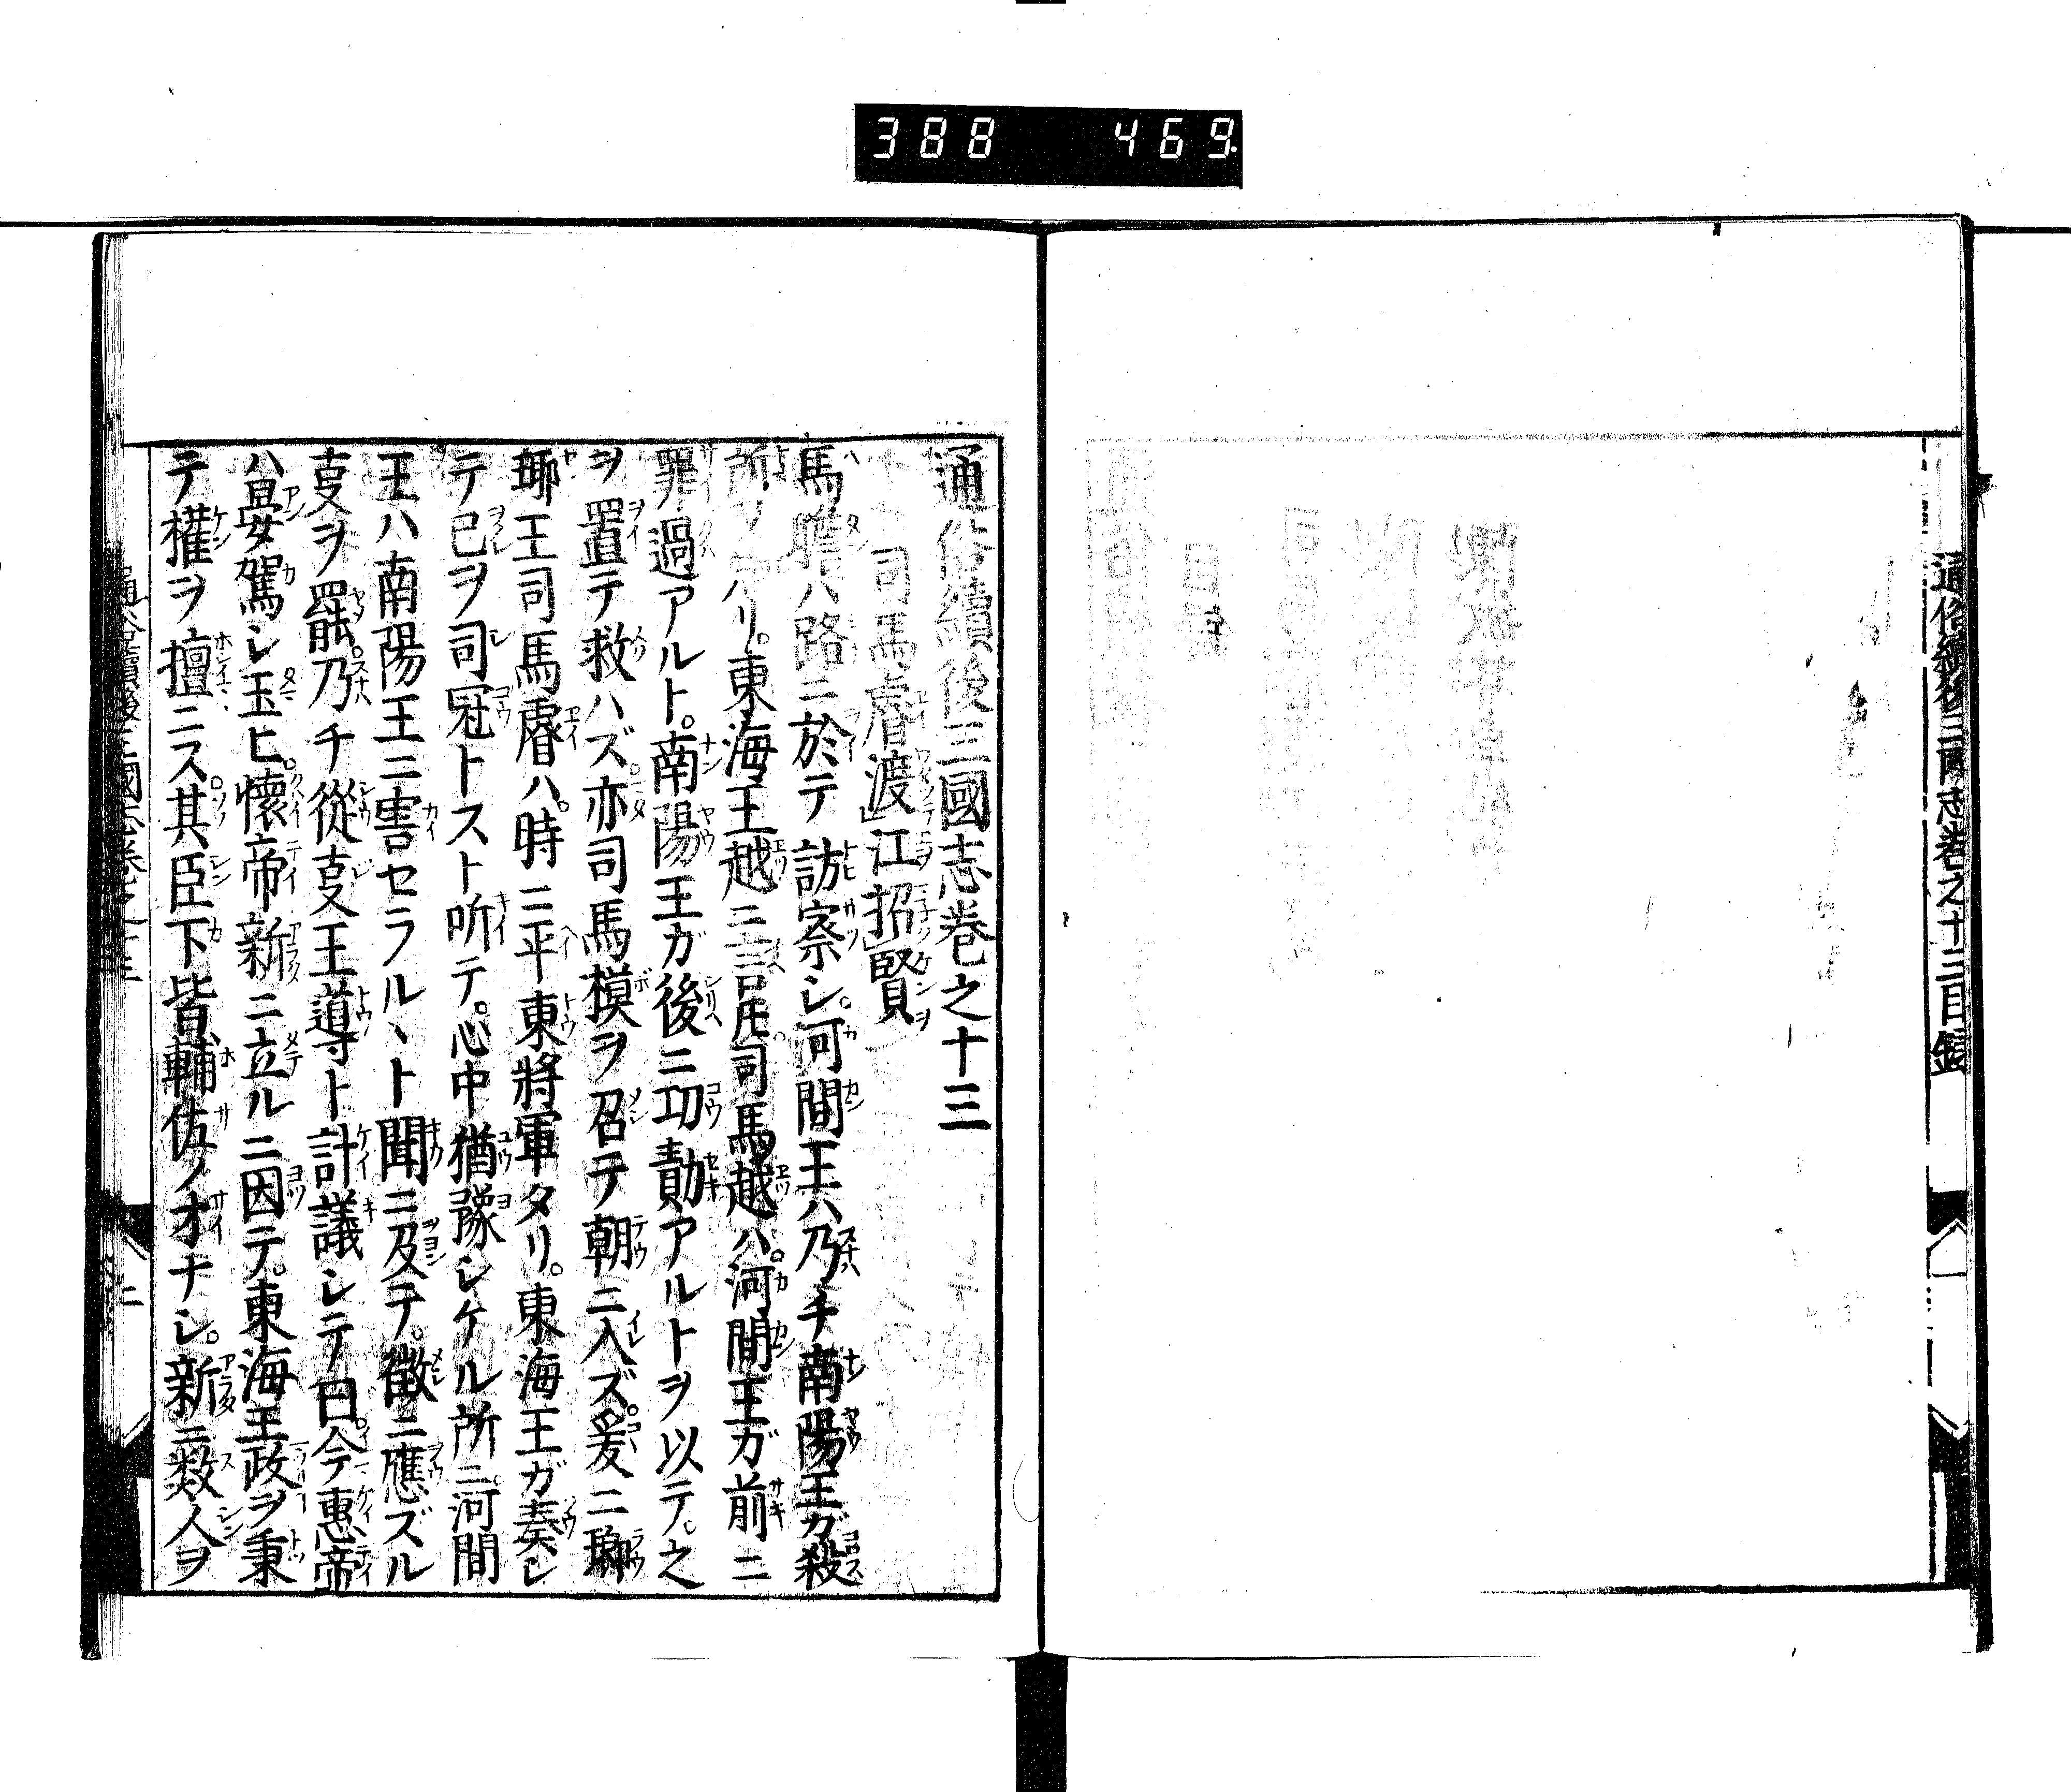 388 469
通俗續後三國志卷之十三目錄
通俗續後三國志卷之十三
司馬睿渡江招賢
馬瞻ハ路ニ於テ訪察シ。河間王ハ乃チ南陽王ガ殺
所ノ ハリ。東海王越ニ 司馬越ハ。河間王ガ前ニ
罪過アルト。南陽王ガ後ニ功勣アルトヲ以テ。之
ヲ置テ救ハズ。亦司馬模ヲ召テ朝ニ入ズ。爰ニ瑯
琊王司馬睿ハ。時ニ平東將軍タリ。東海王ガ奏シ
テ已ヲ司冦トスト听テ。心中猶豫シケル所ニ河間
王ハ南陽王ニ害セラルヽト聞ニ及テ。徵ニ應ズル
叓ヲ罷。乃チ從叓王導ト計議シテ曰。今惠帝
ハ晏駕シ玉ヒ。懷帝新ニ立ルニ因テ。東海王政ヲ秉
テ權ヲ擅ニス。其臣下皆輔佐ノ才ナシ。新ニ数人ヲ